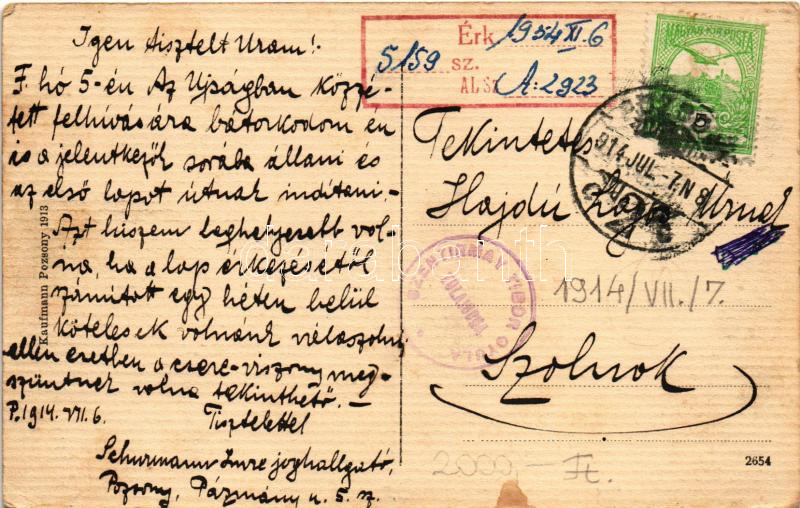 Igen tisztelt Uram!
F. hó 5-én Az Ujságban közzé-
tett felhívására bátorkodom én
is a jelentkezők sorába állani és
az első lapot útnak indítani.-
Azt hiszem leghelyesebb vol-
na, ha a lap érkezésétől
számított egy héten belül
kötelesek volnánk válaszolni,
ellen esetben a csere-viszony meg-
szüntnek volna tekinthető.-
P. 1914. VII. 6.
Tisztelettel
Schurmann Imre joghallgató,
Pozsony, Pázmány u. 5. sz.
Kaufmann Pozsony 1913
Érk. 1954 XI. 6
5159 sz.
A: 2923
MAGYAR KIR. POSTA
914 JUL. -7. N 8
Tekintetes
Hajdú Úrnak
SZENTIRMAI TIBOR GYULA
1914/VII./7.
Szolnok
2000,- Ft.
2654
darabanth